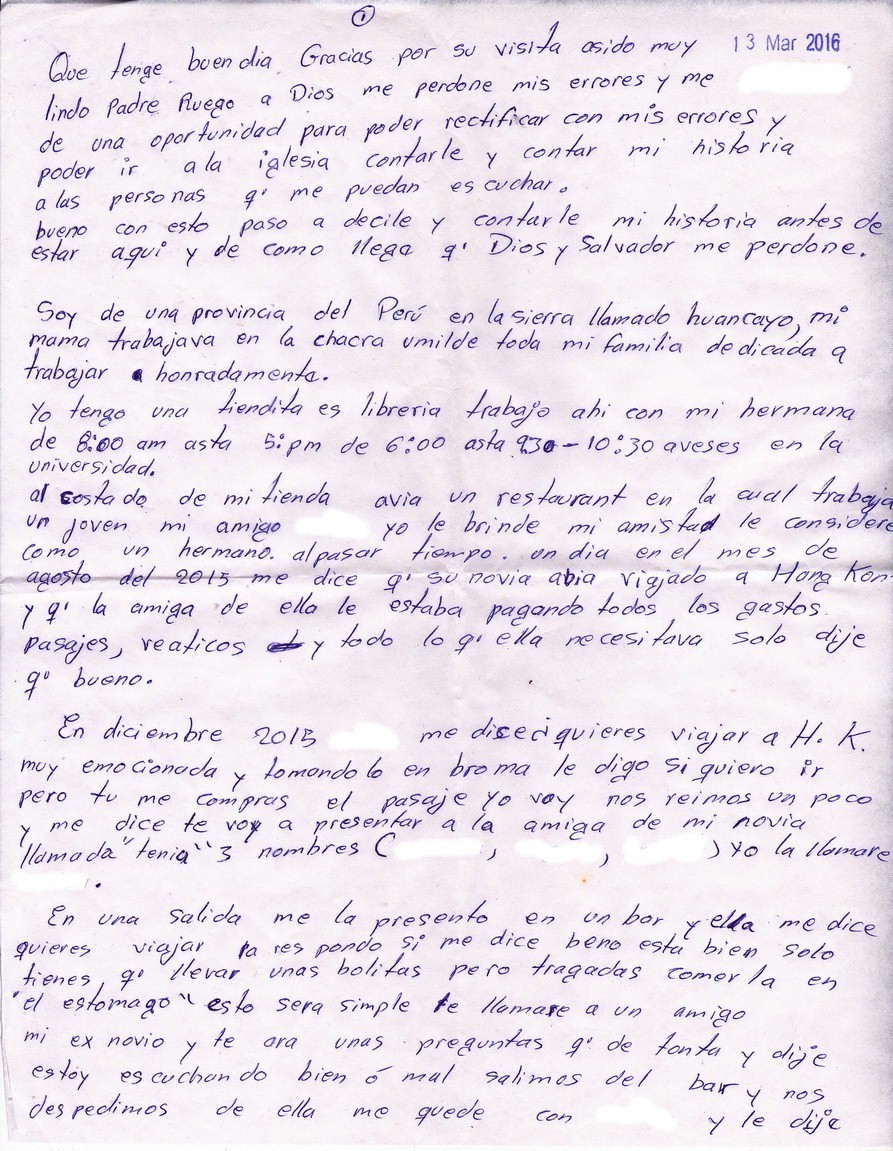 ①
13 Mar 2016
Que tenge buen dia Gracias por su visita asido muy
lindo Padre Ruego a Dios me perdone mis errores y me
de una oportunidad para poder rectificar con mis errores y
poder ir ala iglesia contarle y contar mi historia
alas personas q' me puedan escuchar.
bueno con esto paso a decile y contarle mi historia antes de
estar aqui y de como llega q' Dios y Salvador me perdone.
Soy de una provincia del Perú en la sierra llamado huancayo, mi
mama trabajava en la chacra umilde toda mi familia dedicada a
trabajar honradamente.
Yo tengo una tiendita es libreria trabajo ahi con mi hermana
de 8:00 am asta 5: pm de 6:00 asta 930 - 10:30 aveses en la
universidad.
al costado de mi tienda avia un restaurant en la cual trabaja
un joven mi amigo yo le brinde mi amistad le considere
como un hermano. alpasar tiempo. un dia en el mes de
agosto del 2015 me dice q' su novia abia viajado a Hong Kon
y q' la amiga de ella le estaba pagando todos los gastos
pasajes, veaticos y todo lo q' ella necesitava solo dije
q' bueno.
En diciembre 2015 me dice ci quieres viajar a H. K.
muy emocionada y tomandolo en broma le digo si quiero ir
pero tu me compras el pasaje yo voy nos reimos un poco
y me dice te voy a presentar a la amiga de mi novia
llamada "tenia" 3 nombres ( , , ) yo la llamare
.
En una salida me la presento en un bar y ella me dice
quieres viajar la respondo si me dice beno esta bien solo
tienes q' llevar unas bolitas pero tragadas comerla en
"el estomago" esto sera simple te llamare a un amigo
mi ex novio y te ara unas preguntas q' de tonta y dije
estoy escuchando bien ó mal salimos del bar y nos
despedimos de ella me quede con y le dije